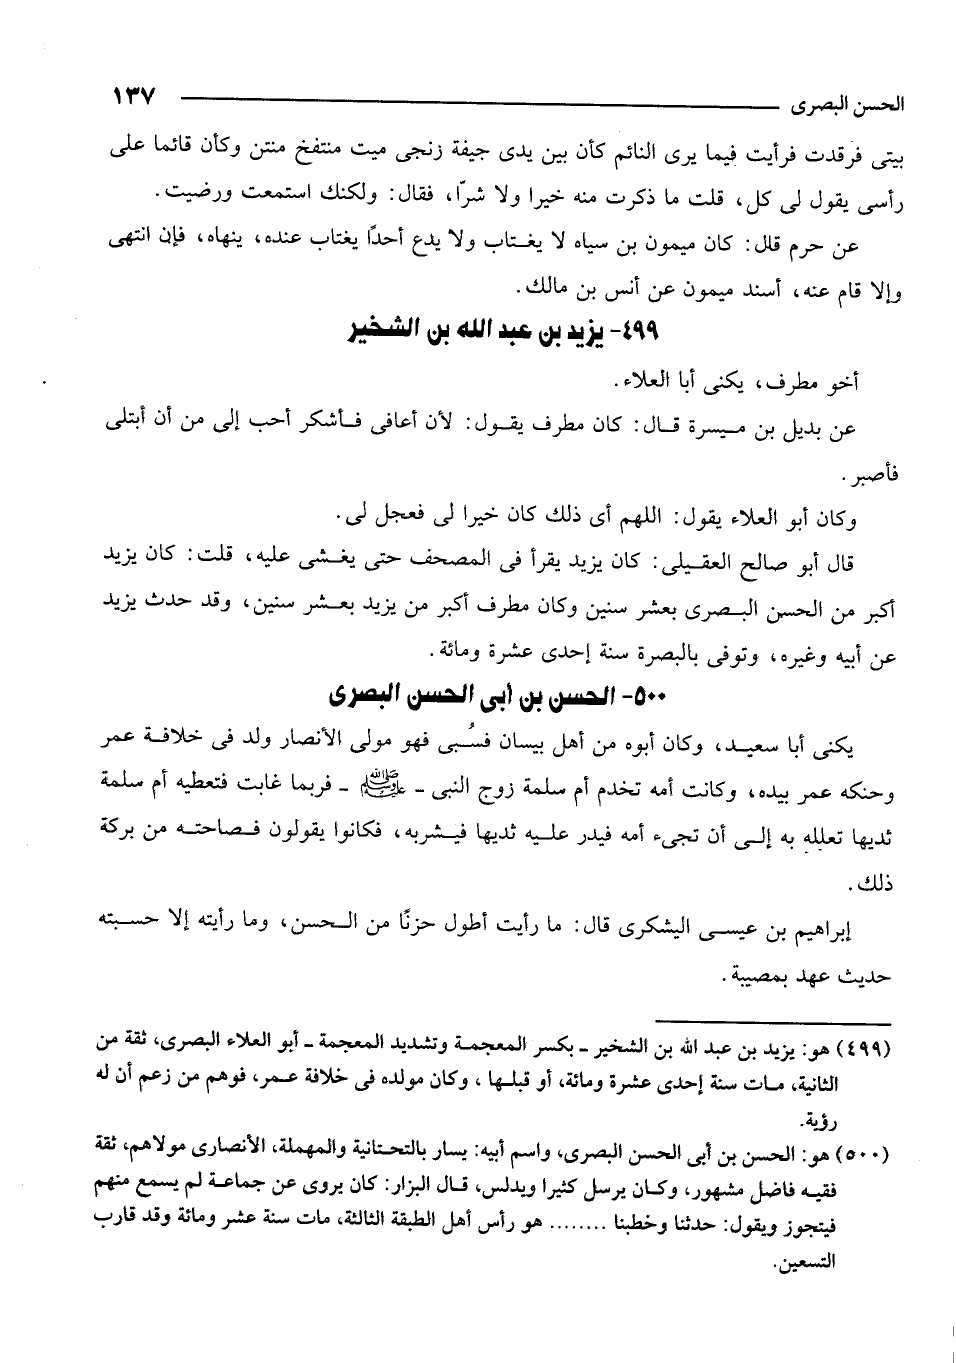 الحسن البصرى ١٣٧
بيتى فرقدت فرأيت فيما يرى النائم كأن بين يدى جيفة زنجى ميت منتفخ منتن وكأن قائما على
رأسى يقول لى كل، قلت ما ذكرت منه خيرا ولا شرّا، فقال: ولكنك استمعت ورضيت.
عن حرم قال: كان ميمون بن سياه لا يغتاب ولا يدع أحدًا يغتاب عنده، ينهاه، فإن انتهى
وإلا قام عنه، أسند ميمون عن أنس بن مالك.
٤٩٩- يزيد بن عبد الله بن الشخير
أخو مطرف، يكنى أبا العلاء.
عن بديل بن ميسرة قال: كان مطرف يقول: لأن أعافى فأشكر أحب إلى من أن أبتلى
فأصبر.
وكان أبو العلاء يقول: اللهم أى ذلك كان خيرا لى فعجل لى.
قال أبو صالح العقيلى: كان يزيد يقرأ فى المصحف حتى يغشى عليه، قلت: كان يزيد
أكبر من الحسن البصرى بعشر سنين وكان مطرف أكبر من يزيد بعشر سنين، وقد حدث يزيد
عن أبيه وغيره، وتوفى بالبصرة سنة إحدى عشرة ومائة.
٥٠٠- الحسن بن أبى الحسن البصرى
يكنى أبا سعيد، وكان أبوه من أهل بيسان فسُبى فهو مولى الأنصار ولد فى خلافة عمر
وحنكه عمر بيده، وكانت أمه تخدم أم سلمة زوج النبى - ﷺ - فربما غابت فتعطيه أم سلمة
ثديها تعلله به إلى أن تجىء أمه فيدر عليه ثديها فيشربه، فكانوا يقولون فصاحته من بركة
ذلك.
إبراهيم بن عيسى اليشكرى قال: ما رأيت أطول حزنًا من الحسن، وما رأيته إلا حسبته
حديث عهد بمصيبة.
(٤٩٩) هو: يزيد بن عبد الله بن الشخير - بكسر المعجمة وتشديد المعجمة - أبو العلاء البصرى، ثقة من
الثانية، مات سنة إحدى عشرة ومائة، أو قبلها، وكان مولده فى خلافة عمر، فوهم من زعم أن له
رؤية.
(٥٠٠) هو: الحسن بن أبى الحسن البصرى، واسم أبيه: يسار بالتحتانية والمهملة، الأنصارى مولاهم، ثقة
فقيه فاضل مشهور، وكان يرسل كثيرا ويدلس، قال البزار: كان يروى عن جماعة لم يسمع منهم
فيتجوز ويقول: حدثنا وخطبنا ........ هو رأس أهل الطبقة الثالثة، مات سنة عشر ومائة وقد قارب
التسعين.